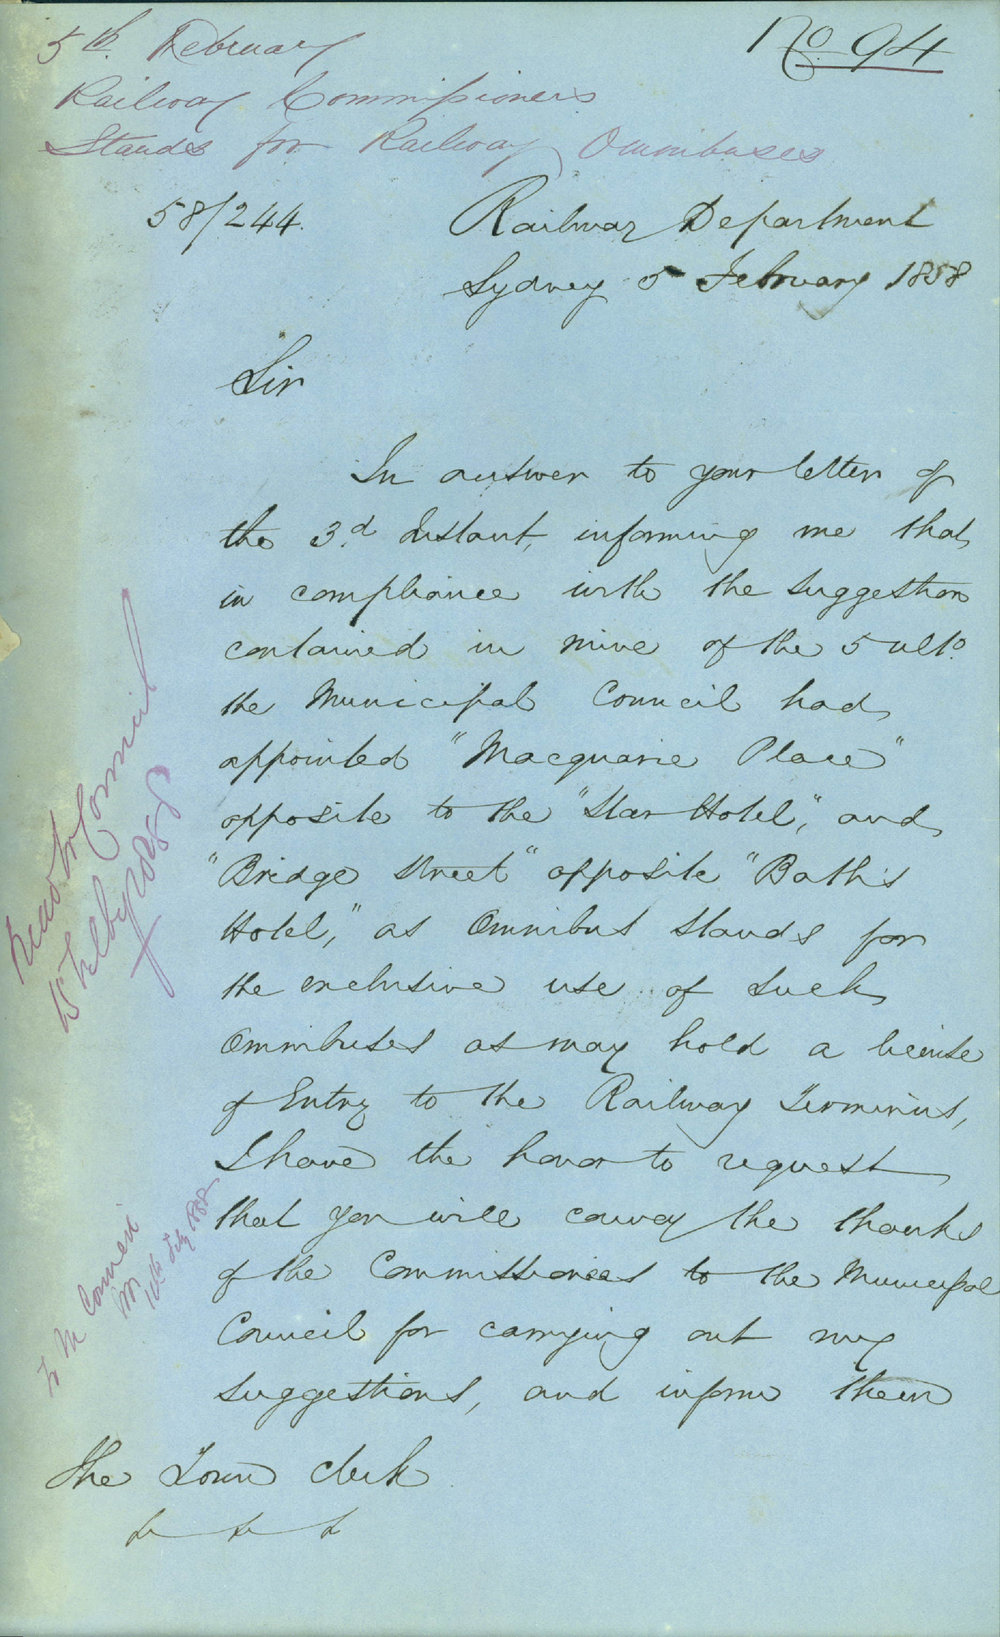 5th. February
No. 94
Railway Commissioners
Stands for Railway Omnibuses
58/244.
Railway Department
Sydney 5 February 1858
Sir
In answer to your letter of
the 3.d Instant, informing me that
in compliance with the suggestion
contained in mine of the 5 ulto.
the Municipal Council had
appointed "Macquarie Place"
opposite to the "Star Hotel", and
"Bridge Street" opposite "Bath's
Hotel," as Omnibus Stands for
the exclusive use of such
Omnibuses as may hold a license
of Entry to the Railway Terminus,
I have the honor to request
that you will convey the thanks
of the Commissioners to the Municipal
Council for carrying out my
suggestions, and inform them
The Town Clerk
Council
15 Feby 1858
To M Council
M
10th Feby 1858